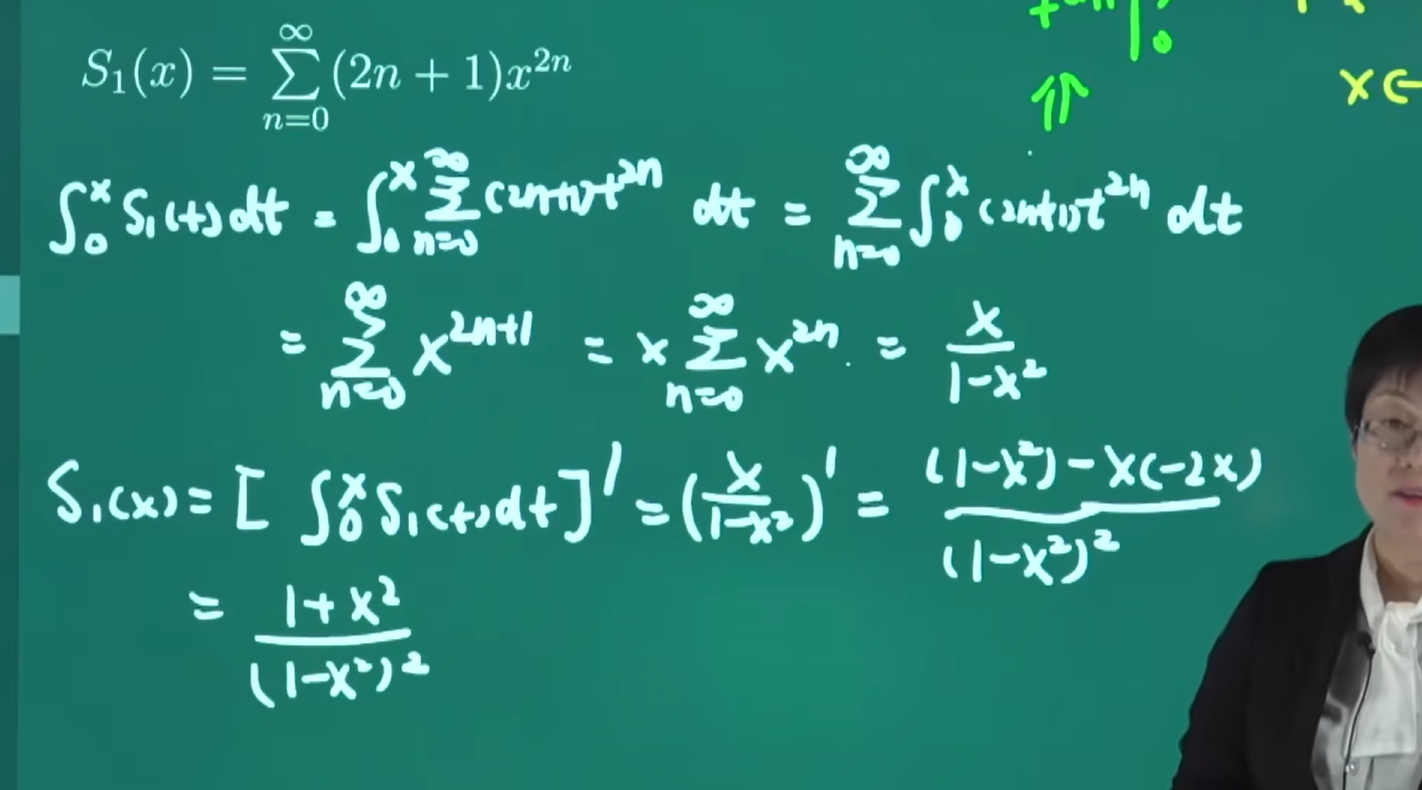 S₁(x) = ∑_{n=0}^{∞} (2n + 1)x^{2n}
x∈
∫₀ˣ S₁(t)dt = ∫₀ˣ ∑_{n=0}^{∞} (2n+1)t^{2n} dt = ∑_{n=0}^{∞} ∫₀ˣ (2n+1)t^{2n} dt
= ∑_{n=0}^{∞} x^{2n+1} = x ∑_{n=0}^{∞} x^{2n} = x/(1-x²)
S₁(x) = [ ∫₀ˣ S₁(t)dt ]' = (x/(1-x²))' = ((1-x²)-x(-2x))/(1-x²)²
= (1+x²)/(1-x²)²